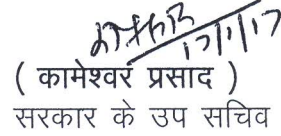 17/1/17
( कामेश्वर प्रसाद )
सरकार के उप सचिव